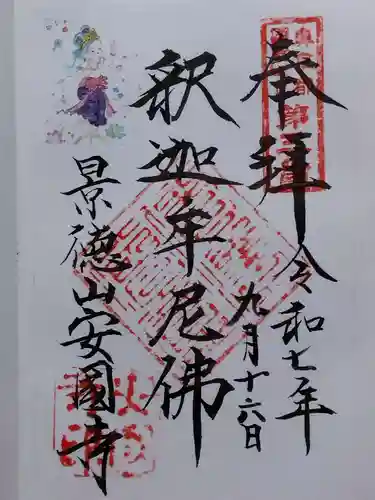 奉拝
令和七年
九月十六日
釈迦牟尼佛
景徳山安國寺